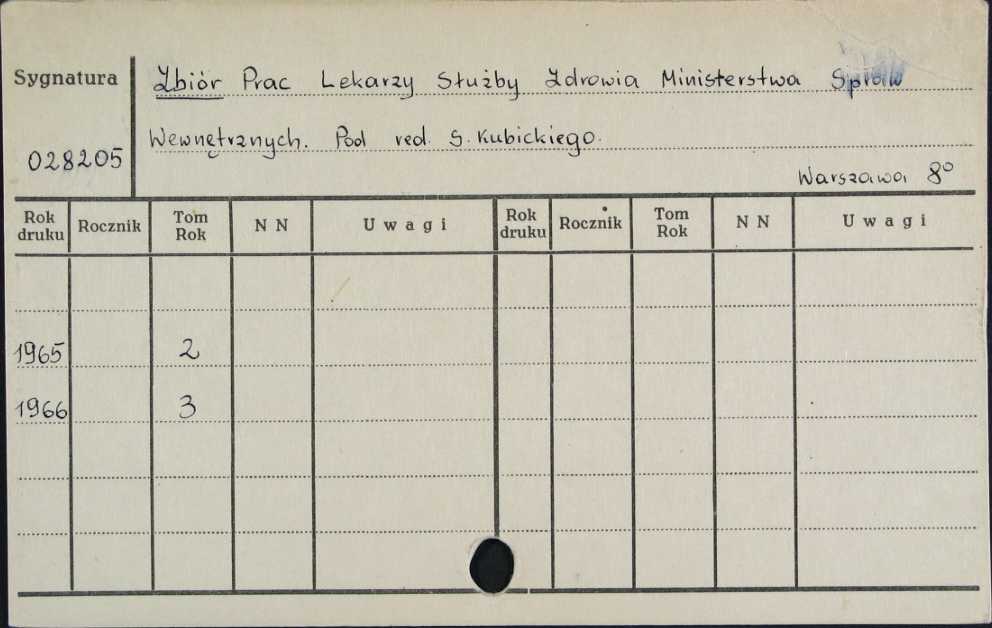 Sygnatura
Zbiór Prac Lekarzy Służby Zdrowia Ministerstwa Spraw
Wewnętrznych. Pod red. S. Kubickiego.
028205
Warszawa 8°
Rok druku Rocznik Tom Rok N N Uwagi Rok druku Rocznik Tom Rok N N Uwagi
1965 2
1966 3